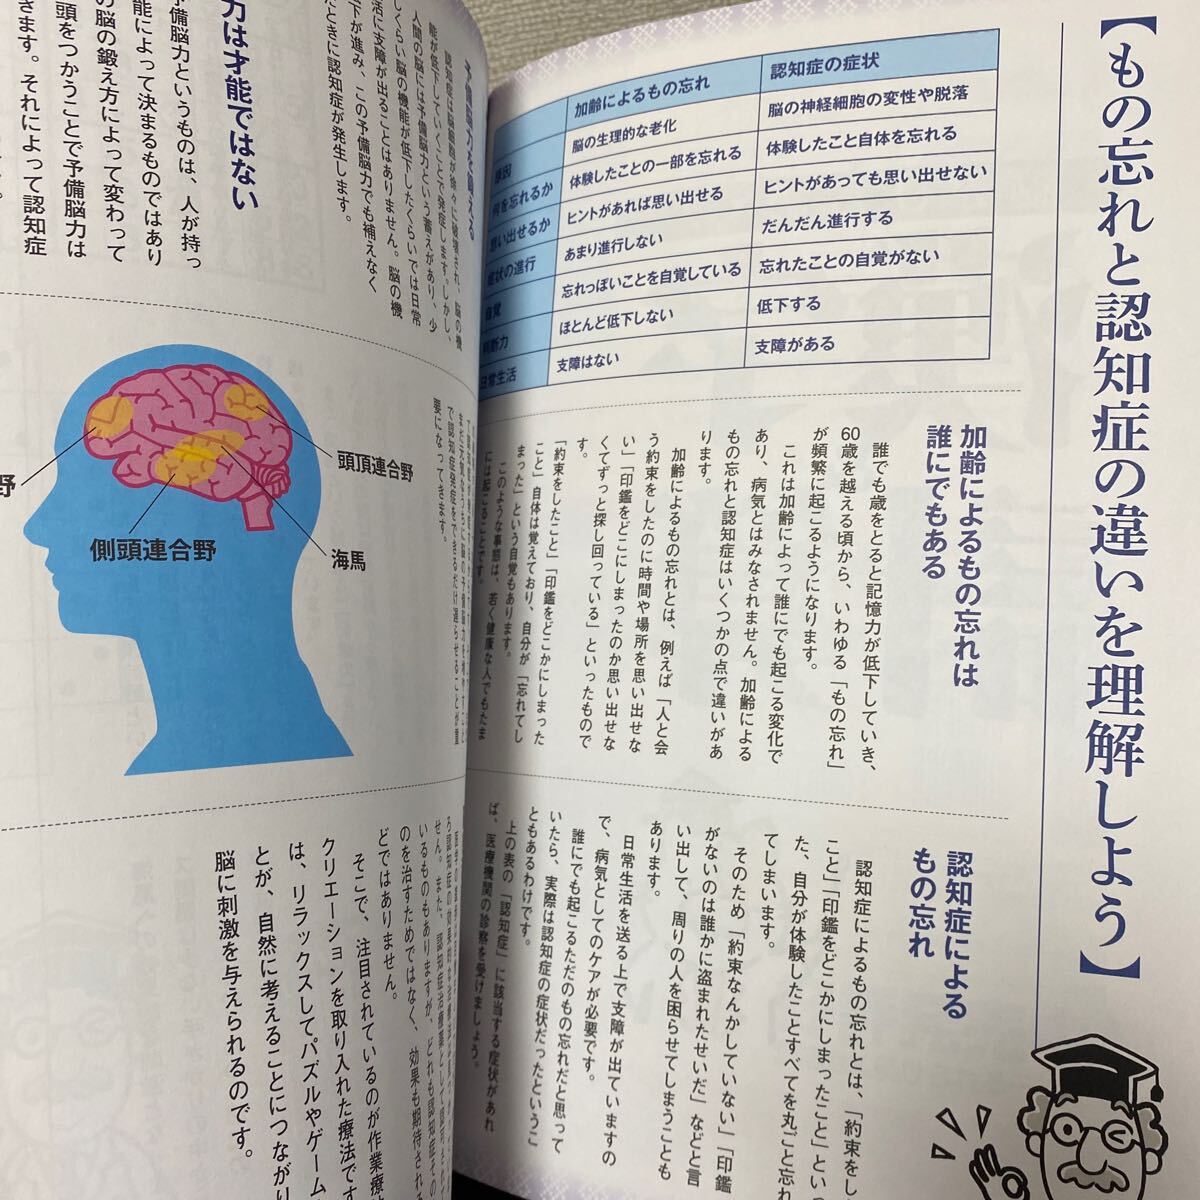 【もの忘れと認知症の違いを理解しよう】
加齢によるもの忘れ
認知症の症状
原因
脳の生理的な老化
脳の神経細胞の変性や脱落
何を忘れるか
体験したことの一部を忘れる
体験したこと自体を忘れる
思い出せるか
ヒントがあれば思い出せる
ヒントがあっても思い出せない
症状の進行
あまり進行しない
だんだん進行する
自覚
忘れっぽいことを自覚している
忘れたことの自覚がない
判断力
ほとんど低下しない
低下する
日常生活
支障はない
支障がある
加齢によるもの忘れは
誰にでもある
誰でも歳をとると記憶力が低下していき、
60歳を越える頃から、いわゆる「もの忘れ」
が頻繁に起こるようになります。
これは加齢によって誰にでも起こる変化で
あり、病気とはみなされません。加齢による
もの忘れと認知症はいくつかの点で違いがあ
ります。
加齢によるもの忘れとは、例えば「人と会
う約束をしたのに時間や場所を思い出せな
い」「印鑑をどこにしまったのか思い出せな
くてずっと探し回っている」といったもので
す。
「約束をしたこと」「印鑑をどこかにしまった
こと」自体は覚えており、自分が「忘れてし
まった」という自覚もあります。
このような事態は、若く健康な人でもたま
には起こることです。
認知症による
もの忘れ
認知症によるもの忘れとは、「約束をし
こと」「印鑑をどこかにしまったこと」といっ
た、自分が体験したことすべてを丸ごと忘れ
てしまいます。
そのため「約束なんかしていない」「印鑑
がないのは誰かに盗まれたせいだ」などと言
い出して、周りの人を困らせてしまうことも
あります。
日常生活を送る上で支障が出ていますの
で、病気としてのケアが必要です。
誰にでも起こるただのもの忘れだと思って
いたら、実際は認知症の症状だったというこ
ともあるわけです。
上の表の「認知症」に該当する症状があれ
ば、医療機関の診察を受けましょう。
予備脳力を鍛える
認知症は脳細胞が徐々に破壊され、脳の機
能が低下していくことで発症します。しかし、
人間の脳には予備脳力という蓄えがあり、少
しくらい脳の機能が低下したくらいでは日常
活に支障が出ることはありません。脳の機
下が進み、この予備脳力でも補えなく
たときに認知症が発生します。
力は才能ではない
予備脳力というものは、人が持っ
能によって決まるものではあり
の脳の鍛え方によって変わって
頭をつかうことで予備脳力は
きます。それによって認知症
まだ元気なうちに脳の予備脳力を増やすこと
で認知症発症をできるだけ遅らせることが重
要になってきます。
野
頭頂連合野
側頭連合野
海馬
せん。また、認知症治療薬として認可されて
いるものもありますが、どれも認知症その
のを治すためではなく、効果も期待される
どではありません。
そこで、注目されているのが作業療
クリエーションを取り入れた療法です
は、リラックスしてパズルやゲーム
とが、自然に考えることにつながり
脳に刺激を与えられるのです。